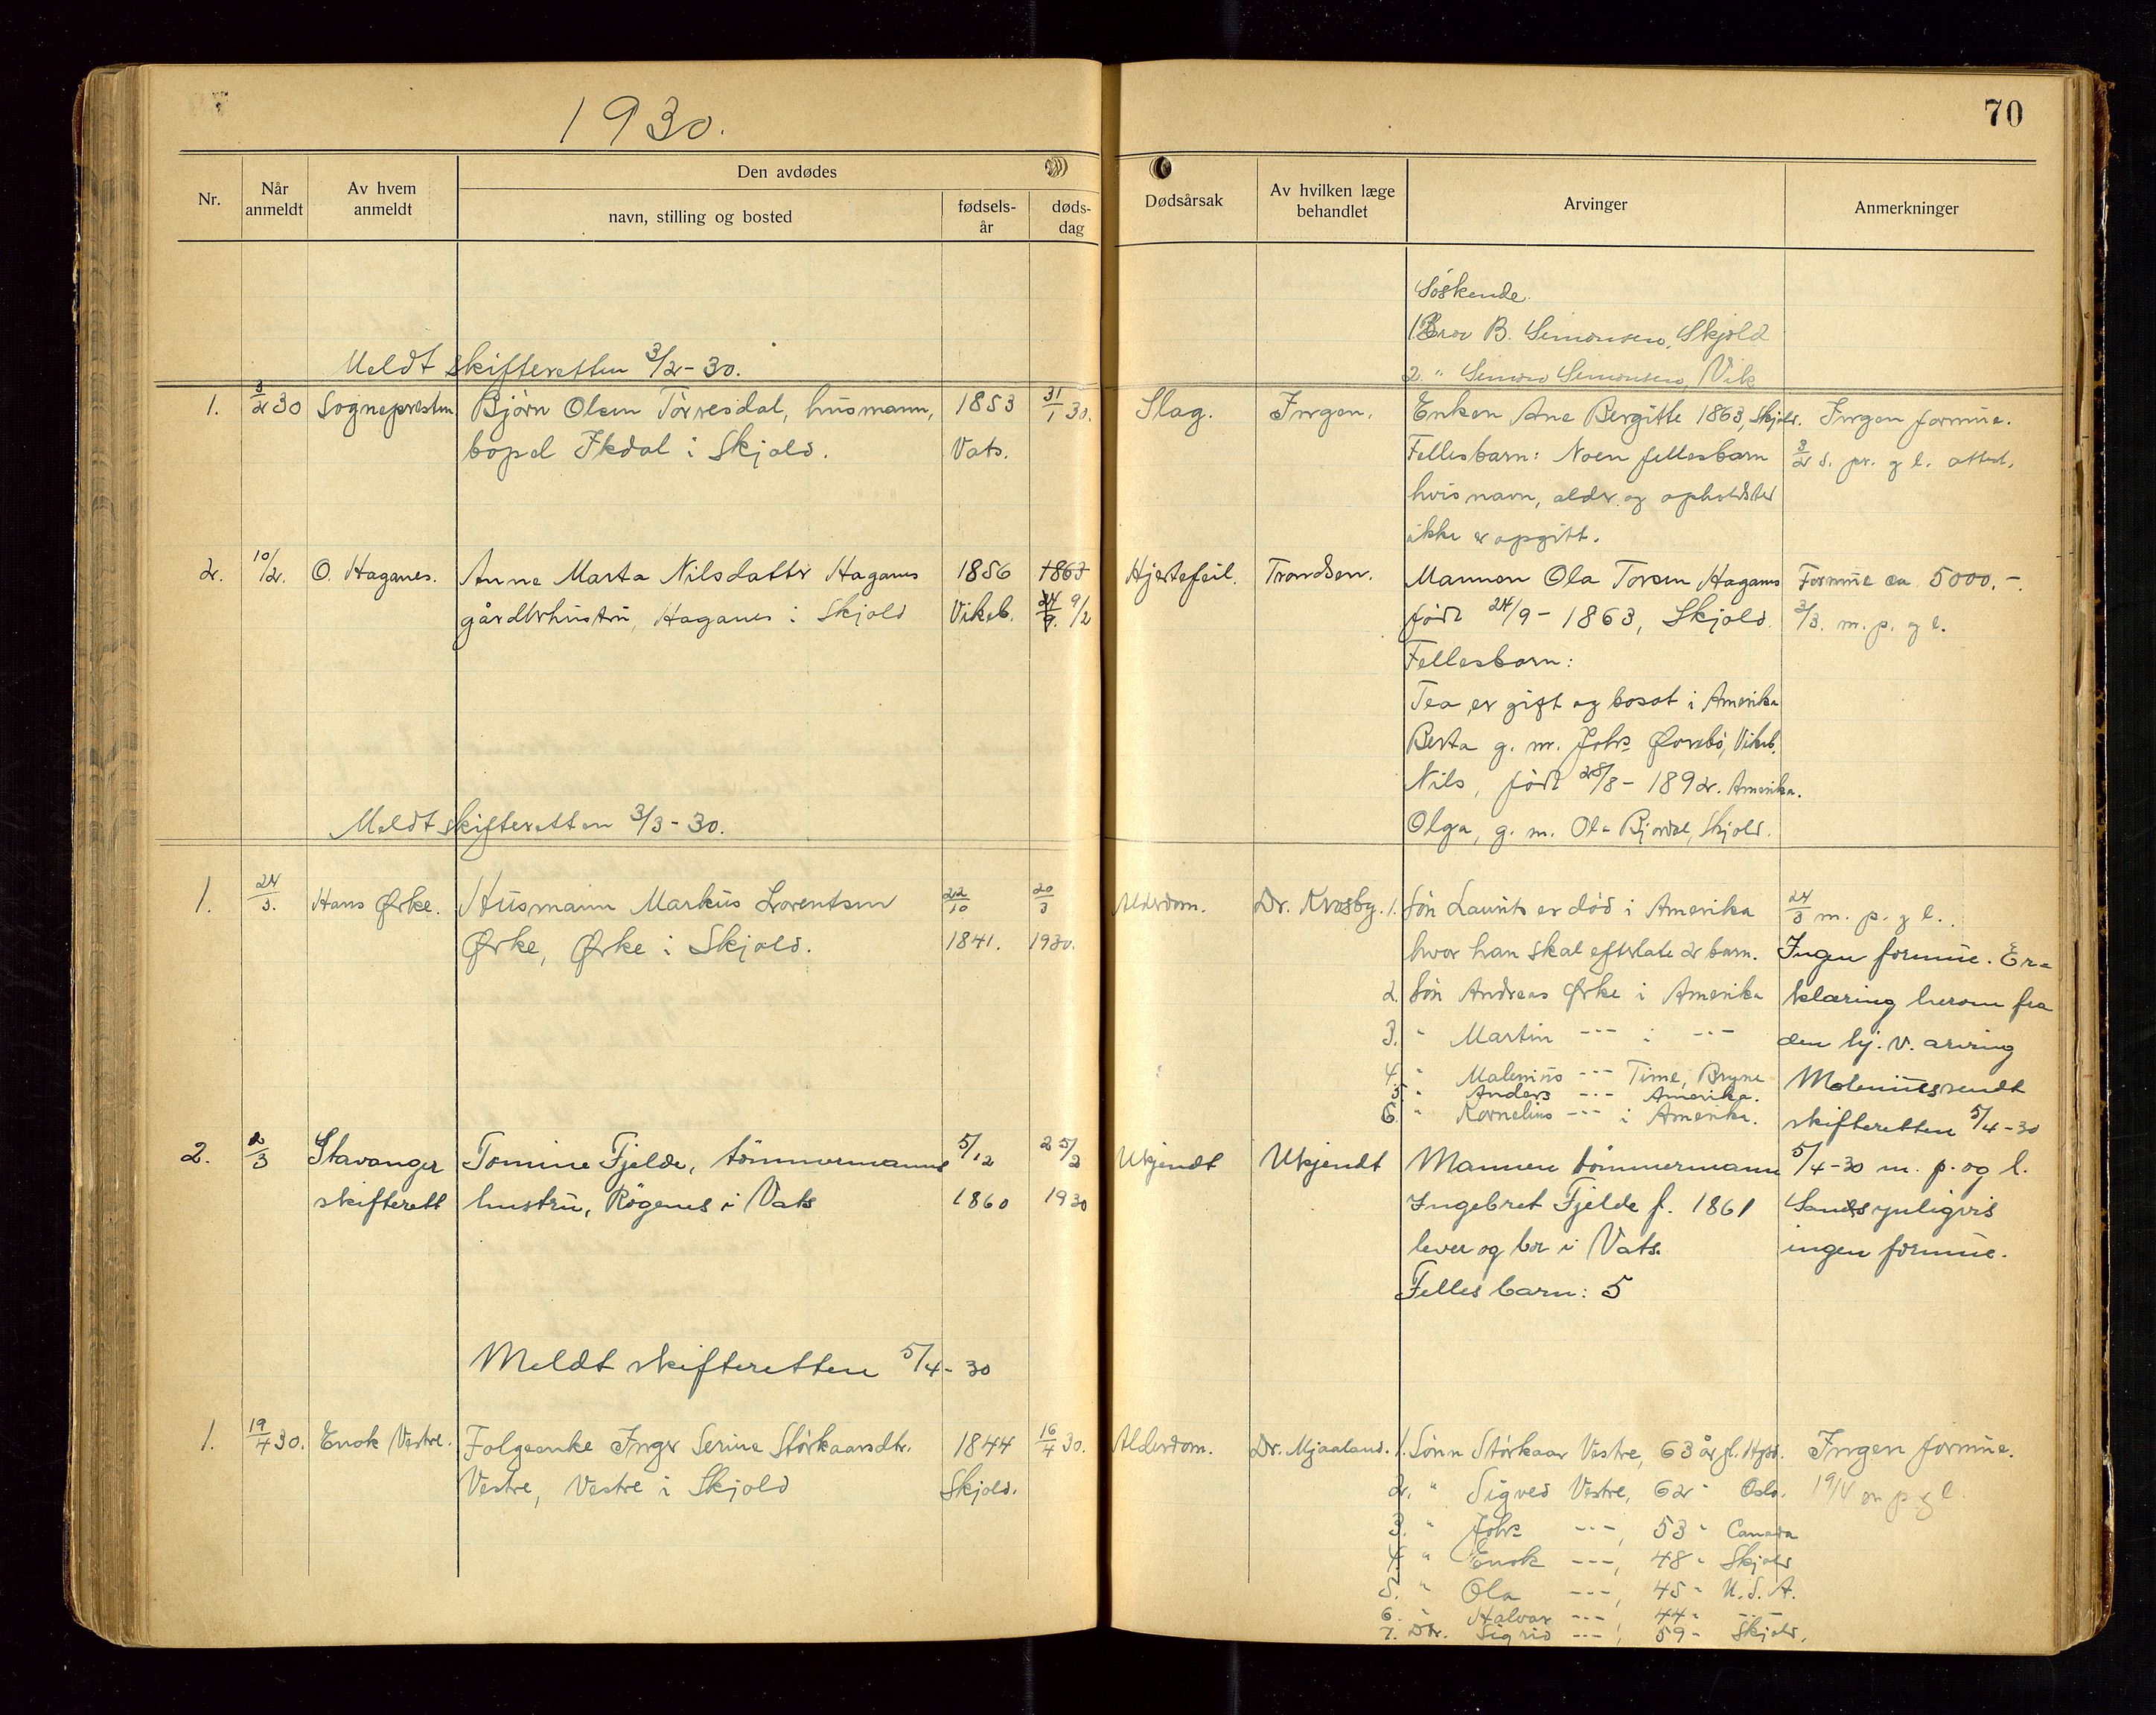 1930.
70
Nr.
Når anmeldt
Av hvem anmeldt
Den avdødes
navn, stilling og bosted
fødsels-år
døds-dag
Dødsårsak
Av hvilken læge behandlet
Arvinger
Anmerkninger
Söskende.
1 Bror B. Simonsen, Skjold
2. " Simon Simonsen, Vik
Meldt skifteretten 3/2-30.
1. 3/2 30 Sognepresten Bjørn Olsen Törresdal, husmann, 1853 31/1 30. Slag. Ingen. Enken Ane Bergitte 1863, Skjold. Ingen formue.
bopel Ikdal i Skjold. Vats. Fellesbarn: Noen fellesbarn 3/2 s. pr. og l. attest.
hvis navn, alder og opholdsted
ikke er opgitt.
2. 10/2. O. Haganes. Anne Marta Nilsdatter Haganes 1856 1863 Hjertefeil. Trondsen. Mannen Ola Torsen Haganes Formue ca 5000.-.
gårdbrhustru, Haganes i Skjold Vikeb. 24/9. 9/2 född 24/9-1863, Skjold. 3/3. m. p. og l.
Fellesbarn:
Tea er gift og bosat i Amerika
Berta g. m. Johs Øvrebö, Vikeb.
Nils, född 28/8-1892. Amerika.
Meldt skifteretten 3/3-30.
Olga, g. m. Ola Bjordal, Skjold.
1. 24/3. Hans Ørke. Husmann Markus Lorentsen 22/10 20/3 Alderdom. Dr. Krosby. 1. Sön Laurits er död i Amerika 24/3 m. p. og l.
Ørke, Ørke i Skjold. 1841. 1930. hvor han skal efterlate 2 barn. Ingen formue. Er=
2. Sön Andreas Ørke i Amerika klæring herom fra
3. " Martin --- i --- den hj. v. arving
4. " Malenius --- Time, Bryne Maleniussendt
5. " Anders --- Amerika.
6. " Kornelius --- i Amerika. skifteretten 5/4-30
2. 2/3 Stavanger Tomine Fjelde, tömmermanns 5/12 25/2 Ukjendt Ukjendt Mannen tömmermann 5/4-30 m. p. og l.
skifterett hustru, Rögenes i Vats 1860 1930 Ingebret Fjelde f. 1861 Sandsynligvis
lever og bor i Vats. ingen formue.
Felles barn: 5
Meldt skifteretten 5/4-30
1. 19/4 30. Enok Vestre. Folgeenke Inger Serine Störkaarsdtr. 1844 16/4 30. Alderdom. Dr. Mjaaland. 1. Sönn Störkaar Vestre, 63 år gl. Hgsd. Ingen formue.
Vestre, Vestre i Skjold Skjold. 2. " Sigved Vestre, 62 " Oslo. 19/4 m p og l.
3. " Johs ---, 53 " Canada
4. " Enok ---, 48 " Skjold
5. " Ola ---, 45 " U.S.A.
6. " Halvar ---, 44 " --
7. Dtr. Sigrid ---, 59 " Skjold.